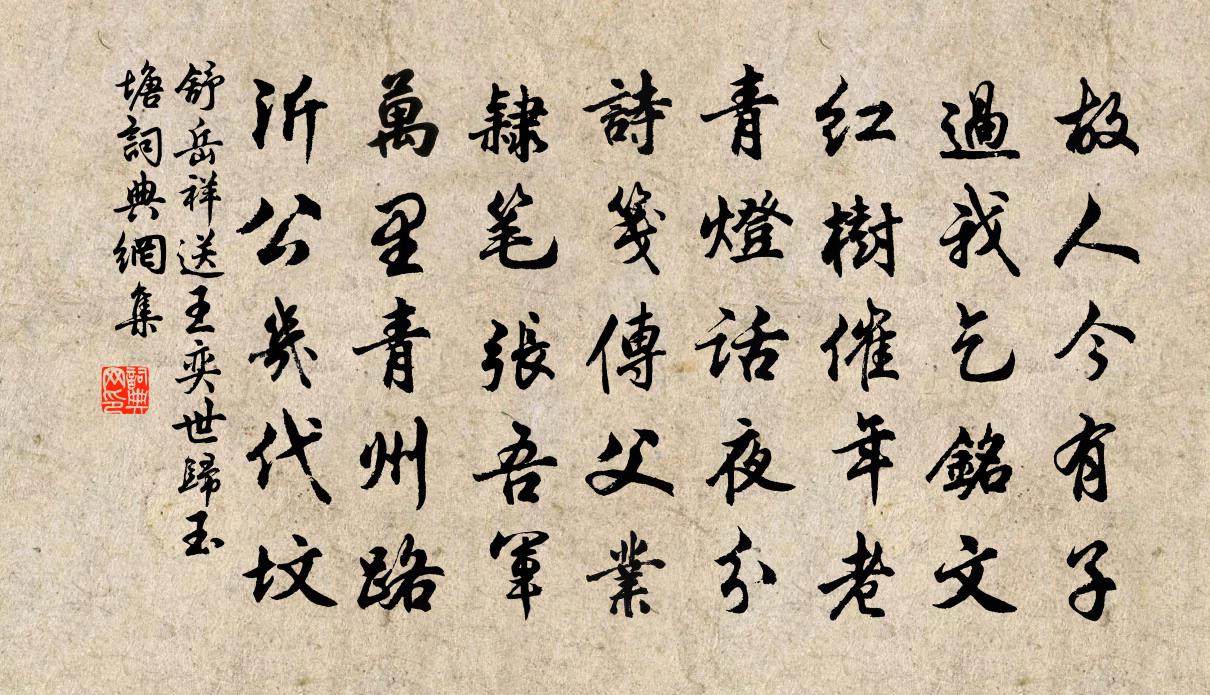 故人今有子
過我乞銘文
紅樹催年老
青燈話夜分
詩箋傳父業
隸笔張吾軍
萬里青州路
沂公幾代坟
舒岳祥送王奕世歸玉
塘詞典網集
詞典
网印